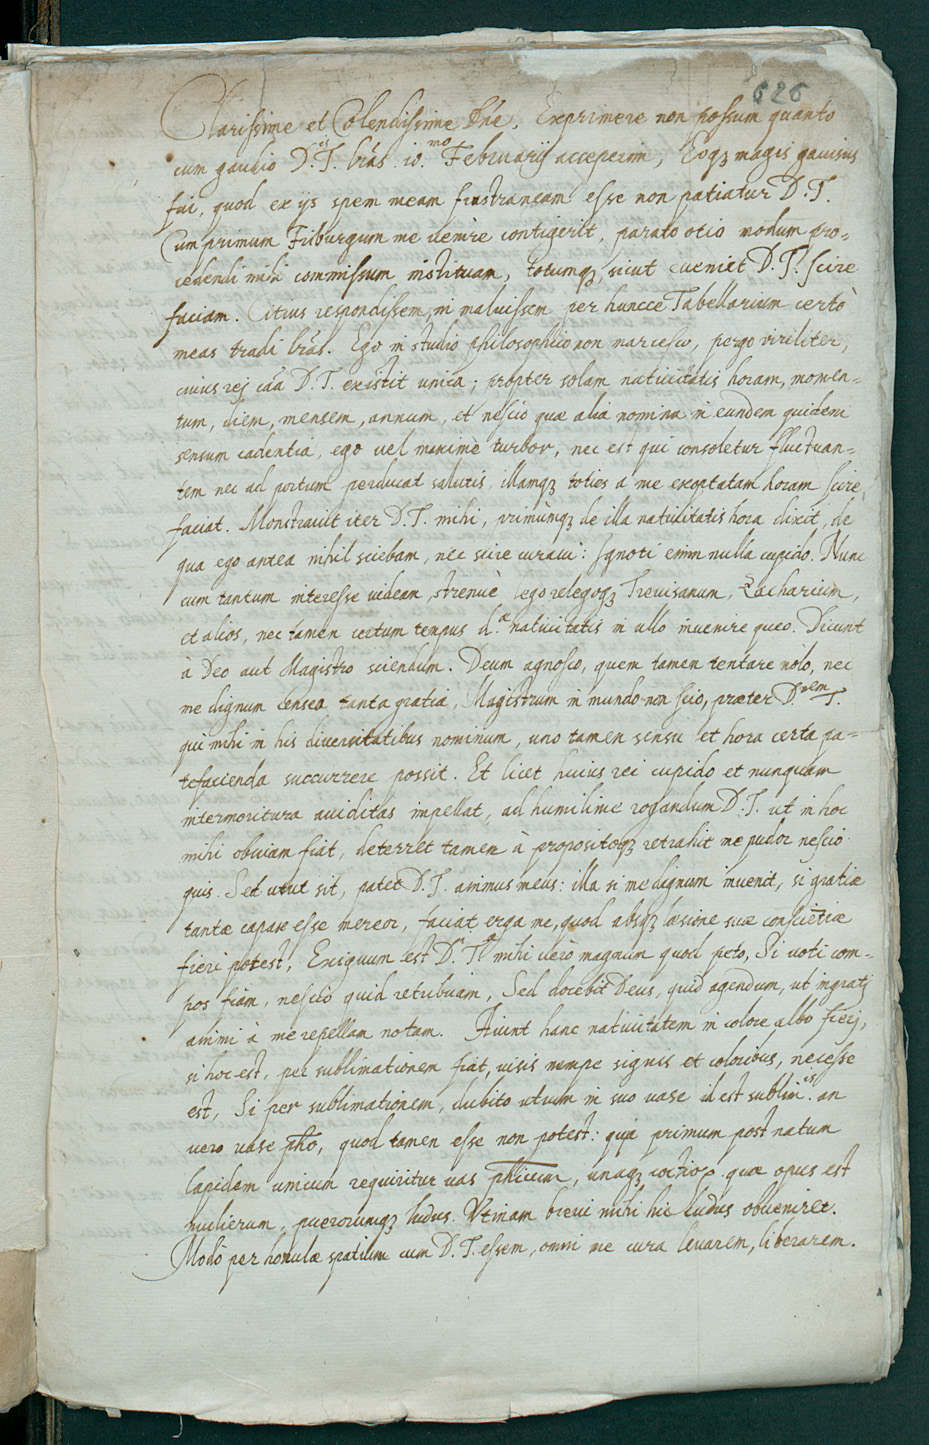 626
Clarissime et Colendissime Dne. Exprimere non possum quanto
cum gaudio D.is T. lras 10.mo Februarij acceperim, Eoq3 magis gavisus
fui, quod ex ijs spem meam frustraneam esse non patiatur D. T.
Cum primum Friburgum me uenire contigerit, parato otio modum pro-
cedendi mihi commissum instituam, totumq3 sicut eueniet D. T. scire
faciam. Citius respondissem, ni maluissem per huncce Tabellarium certò
meas tradi lras. Ego in studio philosophico non marcesco, pergo viriliter,
cuius rej caa D. T. existit unica; propter solam natiuitatis horam, momen-
tum, diem, mensem, annum, et nescio quæ alia nomina in eundem quidem
sensum cadentia, ego uel maximè turbor, nec est qui consoletur fluctuan-
tem nec ad portum perducat salutis, illamq3 toties a me exoptatam horam scire
faciat. Monstrauit iter D. T. mihi, primùmq3 de illa natiuitatis hora dixit, de
qua ego antea nihil sciebam, nec scire curaui: Ignoti enim nulla cupido. Nunc
cum tantum interesse uideam, strenuè lego relegoq3 Treuisanum, Zacharium,
et alios, nec tamen certum tempus d.æ natiuitatis in ullo inuenire queo. Dicunt
à Deo aut Magistro sciendum. Deum agnosco, quem tamen tentare nolo, nec
me dignum censeo tanta gratia, Magistrum in mundo non scio, præter D.nem T.
qui mihi in his diuersitatibus nominum, uno tamen sensu et hora certa pa-
tefacienda succurrere possit. Et licet huius rei cupido et nunquam
intermoritura auiditas impellat, ad humilime rogandum D. T. ut in hoc
mihi obuiam fiat, deterret tamen à propositoq3 retrahit me pudor nescio
quis. Sed utut sit, patet D. T. animus meus: illa si me dignum inuenit, si gratiæ
tantæ capax esse mereor, faciat erga me, quod absq3 læsione suæ conscietiæ
fieri potest, Exiguum est D. T. mihi uerò magnum quod peto, Si uoti com-
pos fiam, nescio quid retribuam, Sed docebit Deus, quid agendum, ut ingratj
animi à me repellam notam. Aiunt hanc natiuitatem in colore albo fierj,
si hoc est, per sublimationem fiat, uisis nempe signis et coloribus, necesse
est, Si per sublimationem, dubito utrum in suo uase id est sublim.is an
uero uase pho, quod tamen esse non potest: quia primum post natum
lapidem unicum requiritur uas phicum, unaq3 coctio quæ opus est
mulierum, puerorumq3 ludus. Vtinam breui mihi hic ludus obueniret.
Modò per horulæ spatium cum D. T. essem, omni me cura leuarem, liberarem.